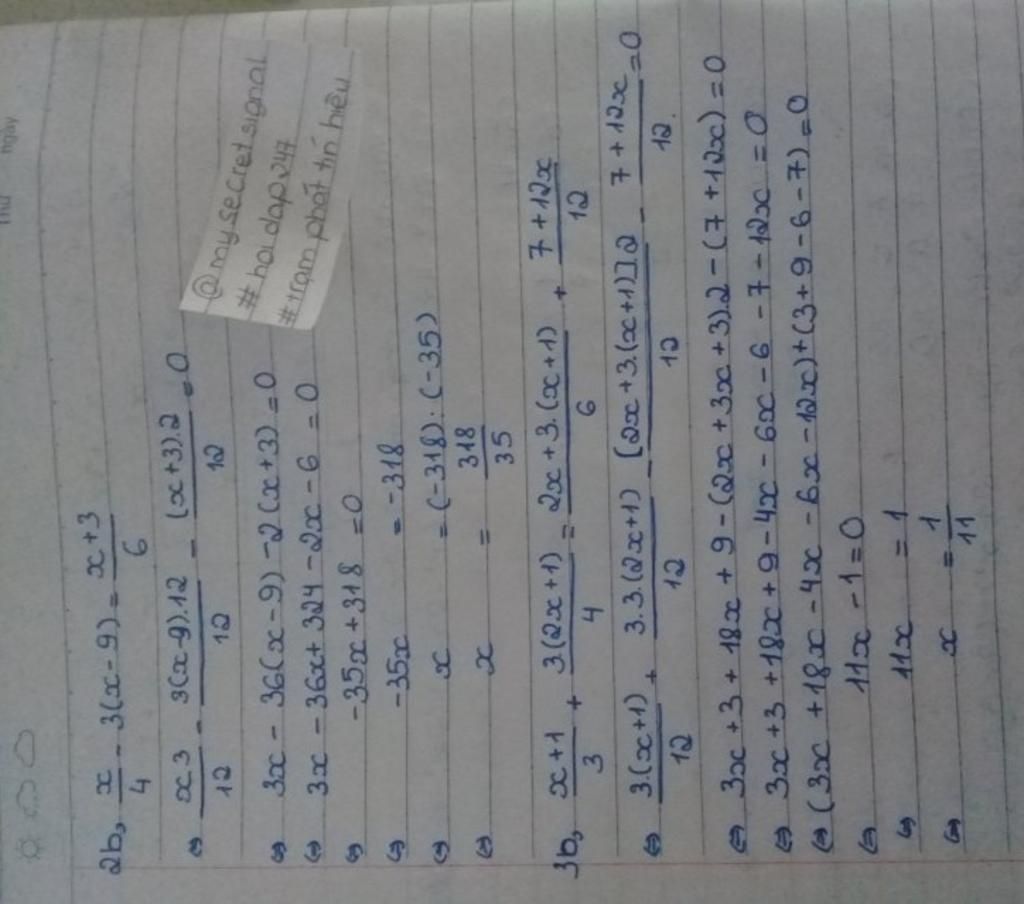 Thứ
ngày
@mysecretsignal
#hoidap247
#trạm phát tín hiệu
2b, x/4 - 3(x-9) = x+3/6
⇔ x3/12 - 3(x-9).12/12 - (x+3).2/12 = 0
⇔ 3x - 36(x-9) - 2(x+3) = 0
⇔ 3x - 36x + 324 - 2x - 6 = 0
⇔ -35x + 318 = 0
⇔ -35x = -318
⇔ x = (-318):(-35)
⇔ x = 318/35
3b, x+1/3 + 3(2x+1)/4 = 2x+3.(x+1)/6 + 7+12x/12
⇔ 3.(x+1)/12 + 3.3.(2x+1)/12 - [2x+3.(x+1)]2/12 - 7+12x/12. = 0
⇔ 3x+3+18x+9-(2x+3x+3).2-(7+12x)=0
⇔ 3x+3+18x+9-4x-6x-6-7-12x=0
⇔ (3x+18x-4x-6x-12x)+(3+9-6-7)=0
⇔ 11x-1=0
⇔ 11x = 1
⇔ x = 1/11